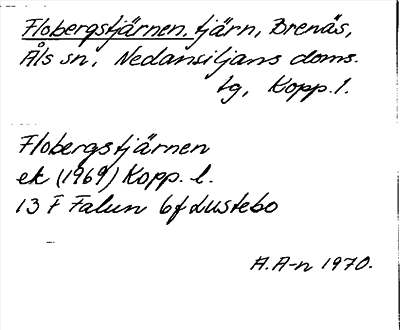 Flobergstjärnen, tjärn, Brenäs,
Åls sn, Nedansiljans doms.
lg, Kopp. l.
Flobergstjärnen
ek (1969) Kopp. l.
13 F Falun 6f Lustebo
A. A-n 1970.